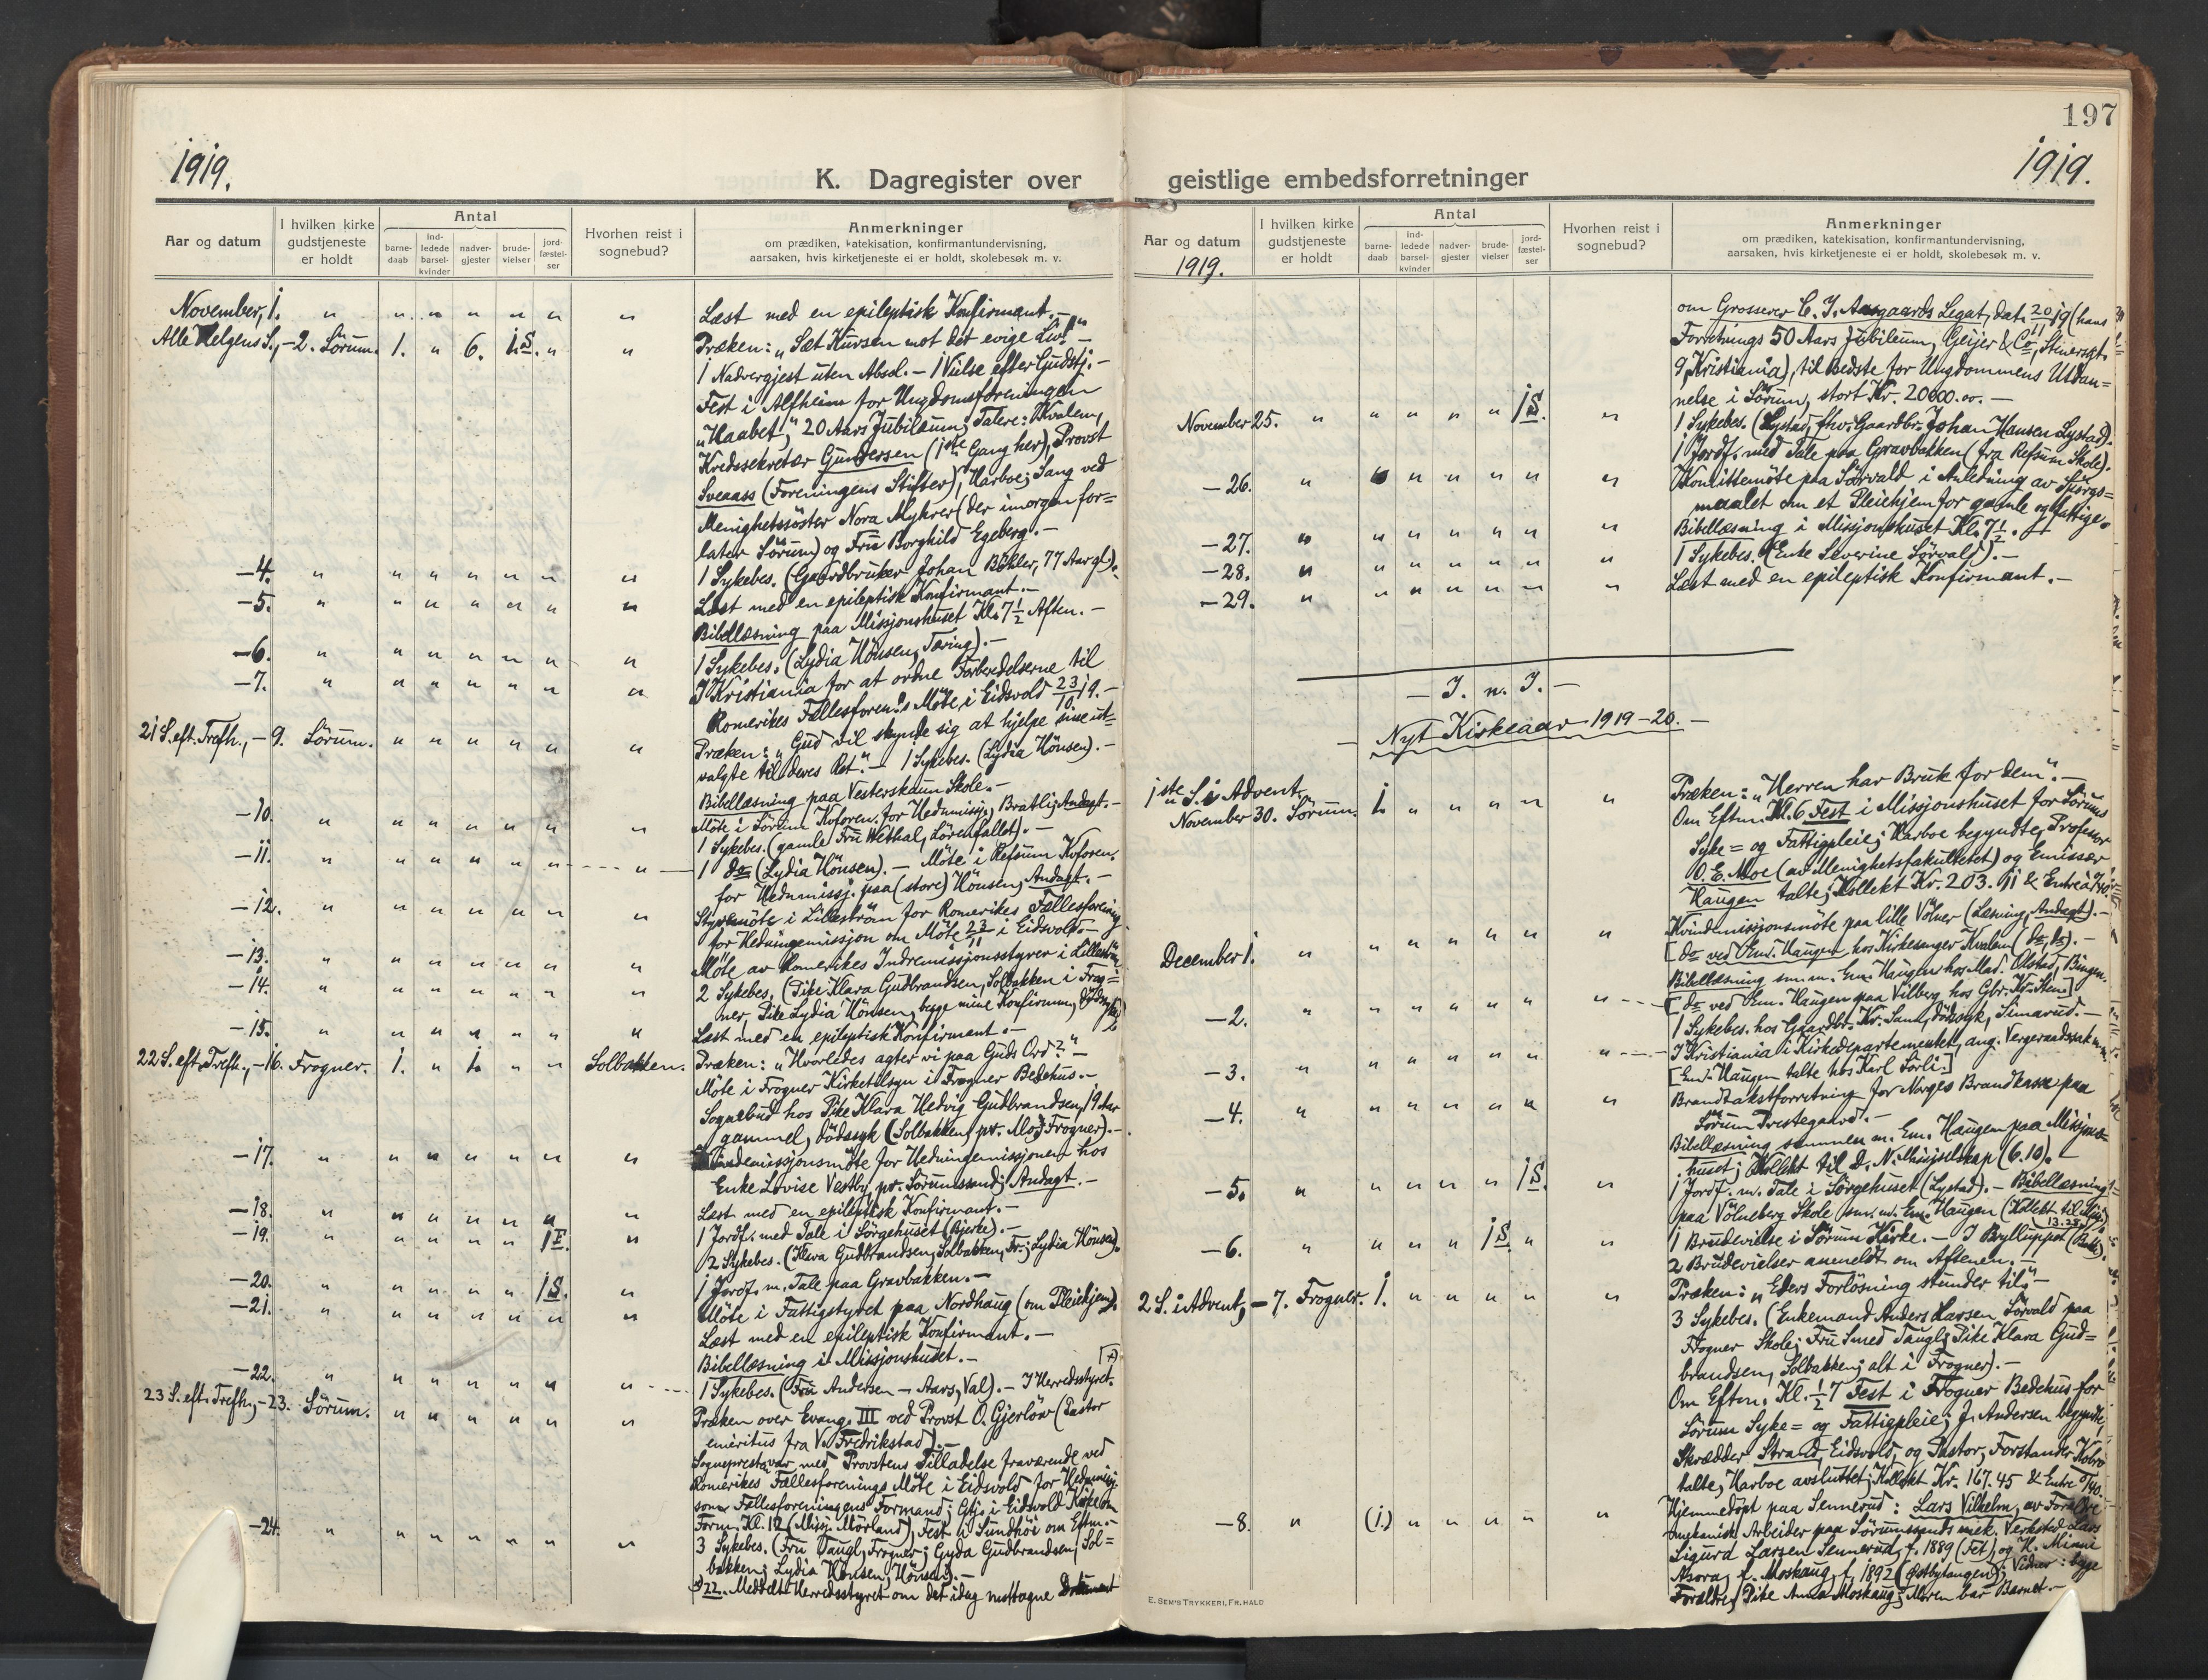 197
1919.
1919.
K. Dagregister over geistlige embedsforretninger
Aar og datum
I hvilken kirke gudstjeneste er holdt
Antal
barne-daab
ind-ledede barsel-kvinder
nadver-gjester
brude-vielser
jord-fæstel-ser
Hvorhen reist i sognebud?
Anmerkninger
om prædiken, katekisation, konfirmantundervisning,
aarsaken, hvis kirketjeneste ei er holdt, skolebesøk m. v.
November, 1. " " " " " " " Læst med en epileptisk Konfirmant. –
Alle Helgens S., – 2. Sörum. 1. " 6. 1 S. " " Præken: „Sæt Kursen mot det evige Liv!" –
1 Nadvergjest uten Absol. – 1 Vielse efter Gudstj. –
Fest i Alfheim for Ungdomsforeningen
„Haabet", 20 Aars Jubilæum; Talere: Kvalem,
Kredssekretær Gundersen (1ste Gang her), Provst
Sveaass (Foreningens Stifter), Harboe; Sang ved
Menighetssöster Nora Myhrer (der imorgen for=
later Sörum) og Fru Borghild Egeberg. –
– 4. " " " " " " " 1 Sykebes. (Gaardbruker Johan Böhler, 77 Aar gl.).
– 5. " " " " " " " Læst med en epileptisk Konfirmant. –
Bibellæsning paa Missjonshuset Kl. 7 1/2 Aften. –
– 6. " " " " " " " 1 Sykebes. (Lydia Hönsen, Tæring). –
– 7. " " " " " " " I Kristiania for at ordne Forberedelserne til
Romerikes Fællesforen.s Möte i Eidsvold 23/10 19. –
21 S. eft. Trefh., – 9. Sörum. " " " " " " Præken: „Gud vil skynde sig at hjelpe sine ut=
valgte til deres Ret." – 1 Sykebes. (Lydia Hönsen). –
Bibellæsning paa Vesterskaun Skole. –
– 10. " " " " " " " Möte i Sörum Kvforen. for Hedmissj., Bratli; Andagt. –
1 Sykebes. (gamle Fru Wethal, Sörenfallet). –
– 11. " " " " " " " 1 do (Lydia Hönsen). – Möte i Refsum Kvforen.
for Hedmmissj. paa (store) Hönsen; Andagt. –
– 12. " " " " " " " Styremöte i Lilleström for Romerikes Fællesforening
for Hedningemissjon om Möte 23/11 i Eidsvold. –
– 13. " " " " " " " Möte av Romerikes Indremissjonsstyrer i Lilleström
– 14. " " " " " " " 2 Sykebes. (Pike Klara Gudbrandsen, Solbakken i Frog=
ner, Pike Lydia Hönsen, begge mine Konfirmm.,
– 15. " " " " " " " Læst med en epileptisk Konfirmant. –
22 S. eft. Trefh., – 16. Frogner. 1. " 1. " " Solbakken. Præken: „Hvorledes agter vi paa Guds Ord?" –
Möte i Frogner Kirketilsyn i Frogner Bedehus. –
Sognebud hos Pike Klara Hedvig Gudbrandsen, 19 Aar
gammel, dödssyk (Solbakken pr. Moj Frogner). –
– 17. " " " " " " " Kvindemissjonsmöte for Hedningemissjonen hos
Enke Lovise Vestby pr. Sörumssand; Andagt. –
– 18. " " " " " " " Læst med en epileptisk Konfirmant. –
– 19. " " " " " 1 F. " 1 Jordf. med Tale i Sörgehuset (Bjerke). –
2 Sykebes. (Klara Gudbrandsen, Solbakken, Fr.; Lydia Hönsen).
– 20. " " " " " 1 S. " 1 Jordf. m. Tale paa Gravbakken. –
– 21. " " " " " " " Möte i Fattigstyret paa Nordhaug (om Pleiehjem).
Læst med en epileptisk Konfirmant. –
Bibellæsning i Missjonshuset. –
– 22. " " " " " " " 1 Sykebes. (Fru Andersen – Aars, Val). – I Herredsstyret.
23 S. eft. Trefh., – 23. Sörum. " " " " " " Præken over Evang. III ved Provst O. Gjerlöw (Pastor
emeritus fra V. Fredrikstad). –
Sogneprestavar med Provstens Tilladelse fraværende ved
Romerikes Fællesforenings Möte i Eidsvold for Hedmissj.
som Fællesforeningens Formand; Gtj. i Eidsvold Kirke om
Form. Kl. 12 (Missj. Mörland), Fest i Sundhöi om Eftm. –
– 24. " " " " " " " 3 Sykebes. (Fru Taugl, Frogner; Gyda Gudbrandsen, Sol=
bakken; Lydia Hönsen, Hönsen). –
22. Meddelt Herredsstyret om det idag mottagne Dokument
Aar og datum
1919.
I hvilken kirke gudstjeneste er holdt
Antal
barne-daab
ind-ledede barsel-kvinder
nadver-gjester
brude-vielser
jord-fæstel-ser
Hvorhen reist i sognebud?
Anmerkninger
om prædiken, katekisation, konfirmantundervisning,
aarsaken, hvis kirketjeneste ei er holdt, skolebesøk m. v.
om Grosserer C. J. Aasgaards Legat, dat. 20/11 19 (hans
Forretnings 50 Aars Jubileum, Geijer & Co, Stenersgt.
9, Kristiania), til Bedste for Ungdommens Utdan=
nelse i Sörum, stort Kr. 20000.00. –
November 25. " " " " " 1 S. " 1 Sykebes. (Lystad, fhv. Gaardbr. Johan Hansen Lystad).
1 Jordf. med Tale paa Gravbakken (fra Refsum Skole).
– 26. " " " " " " " Komittemöte paa Sörvald i Anledning av Spörgs=
maalet om et Pleiehjem for gamle og fattige.
– 27. " " " " " " " Bibellæsning i Missjonshuset Kl. 7 1/2. –
– 28. " " " " " " " 1 Sykebes. (Enke Severine Sörvald). –
– 29. " " " " " " " Læst med en epileptisk Konfirmant. –
– I. n. J. –
– Nyt Kirkeaar 1919–20. –
1ste S. i Advent,
November 30. Sörum. 1. " " " " " Præken: „Herren har Bruk for dem". –
Om Eftm. Kl. 6 Fest i Missjonshuset for Sörums
Syke= og Fattigpleie; Harboe begyndte, Professor
O. E. Moe (av Menighetsfakultetet) og Emissær
Haugen talte; Kollekt Kr. 203.91 & Entre à 0/40.
December 1. " " " " " " " Kvindmissjonsmöte paa lille Völner (Læsning, Andagt). –
[do ved Em. Haugen hos Kirkesanger Kvalem (do, do). –
Bibellæsning sm. m. Em. Haugen hos Mad. Olstad, Bingen.
– 2. " " " " " " " [do ved Em. Haugen paa Vilberg hos Gbr. Kr. Sten.]
1 Sykebes. hos Gaardbr. Kr. Sand, dödssyk, Simarud. –
– 3. " " " " " " " I Kristiania i Kirkedepartementet, ang. Vergeraadssak m.m.
[Em. Haugen talte hos Karl Sörli.]
– 4. " " " " " " " Brandtakstforretning for Norges Brandkasse paa
Sörum Prestegaard. –
Bibellæsning sammen m. Em. Haugen paa Missjons=
huset; Kollekt til d. N. Missjselskap (6.10). –
– 5. " " " " " 1 S. " 1 Jordf. m. Tale i Sörgehuset (Lystad). – Bibellæsning
paa Völneberg Skole sm. m. Em. Haugen (Kollekt til
13.25
– 6. " " " " 1 S. " " 1 Brudevielse i Sörum Kirke. – I Bryllupper
2 Brudevielser anmeldt om Aftenen. –
2 S. i Advent, – 7. Frogner. 1. " " " " " Præken: „Eders Forlösning stunder til." –
3 Sykebes. (Enkemand Anders Larsen Sörvald paa
Frogner Skole; Fru Smed Taugl; Pike Klara Gud=
brandsen, Solbakken; alt i Frogner). –
Om Eftm. Kl. 1/2 7 Fest i Frogner Bedehus for
Sörum Syke= og Fattigpleie; J. Andersen begyndte,
Skrædder Strand, Eidsvold, og Pastor, Forstander Kobro
talte, Harboe avsluttet; Kollekt Kr. 167.45 & Entre 0/40.
– 8. " (1.) " " " " " Hjemmedöpt paa Sennerud: Lars Vilhelm, av Forældre
mekanisk Arbeider paa Sörumssands mek. Verksted Lars
Sigurd Larsen Sennerud, f. 1889 (Fet), og H. Minni
Moskaug, f. 1892 (Östbytangen); Vidner: begge
Forældre, Pike Anna Moskaug; Moren bar Barnet. –
E. SEM'S TRYKKERI, FR.HALD